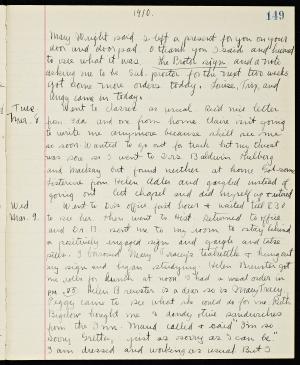 1910.
149
Mary Wright said she left a present for you on your
door and door pad. O thank you I said and hurried
to see what it was. The Bates sign and a note
asking me to be Sub-proctor for the next two weeks
Got home more orders today. Louise, Trix, and
came in today.
Tues Went to classes as usual. Had nice letter
Mar. 8. from Eda and one from home Claire isn't going
to write me anymore because she'll see me
so soon. Wanted to go out for track but my throat
was sore so I went to Drs. Baldwin Hedberg
and Mackay but found neither at home Got some
listerine from Helen Adler and gargled instead of
going out. Cut chapel and did
Wed Went to Drs office first hour & waited till 9:30
Mar. 9. to see her then went to West. Returned to office
and Dr. B. sent me to my room to stay behind
a positively engaged sign and gargle and take
pills. I borrowed Mary Tracy's and hung out
my sign and began studying. Helen Brewster got
me milk for lunch at noon I had a maid order in
pm .05. Helen Brewster is a dear so is Mary Tracy.
Peggy came to see what she could do for me. Ruth
Bigelow bought me 2 dandy olive sandwiches
from the Inn. Maud called & said "I'm so
sorry Gretta, just as sorry as I can be."
I am dressed and working as usual But I